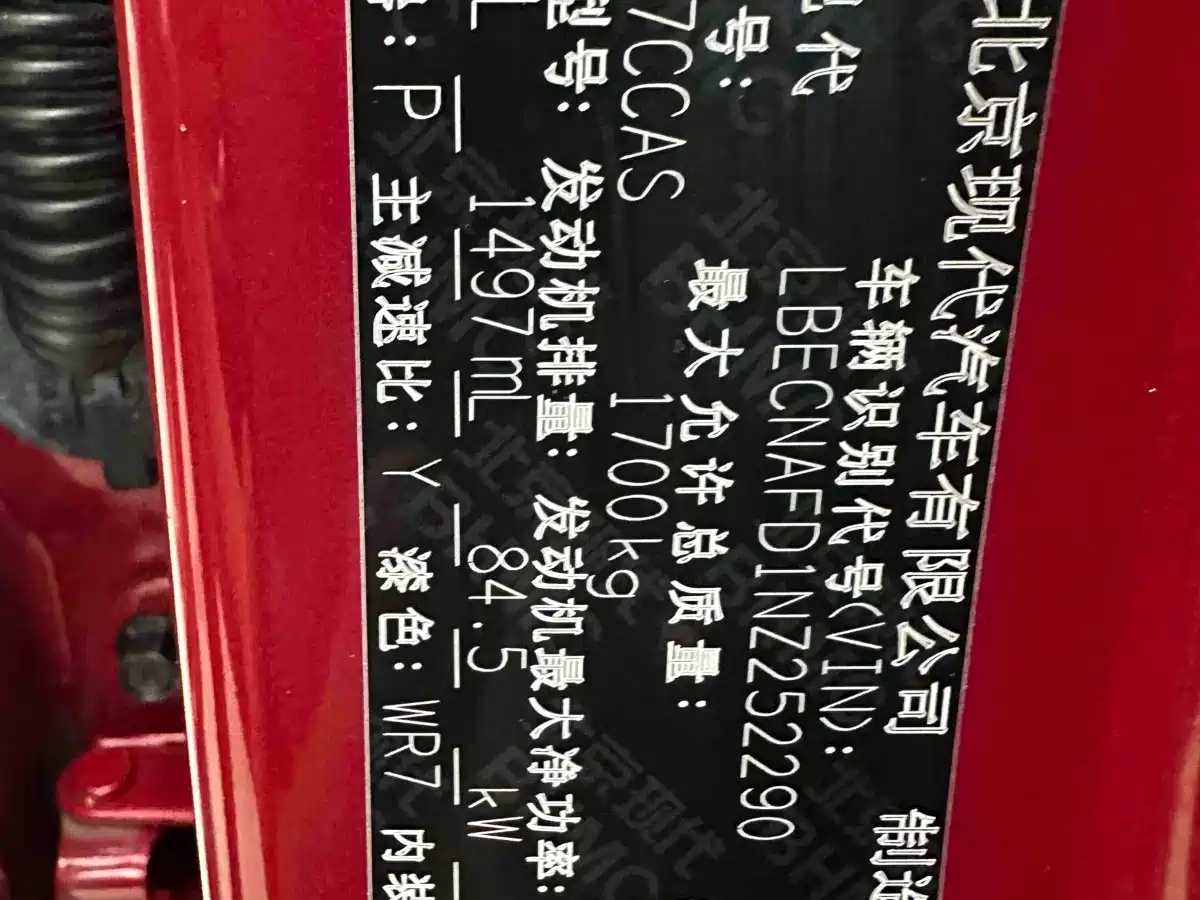 北京现代汽车有限公司 制造
现代 车辆识别代号(VIN):
LBECNAFD1NZ252290
号: 最大允许总质量:
7CCAS 1700kg
型号: 发动机排量: 发动机最大净功率:
L 1497mL 84.5 kW
号: P 主减速比: Y 漆色: WR7 内装